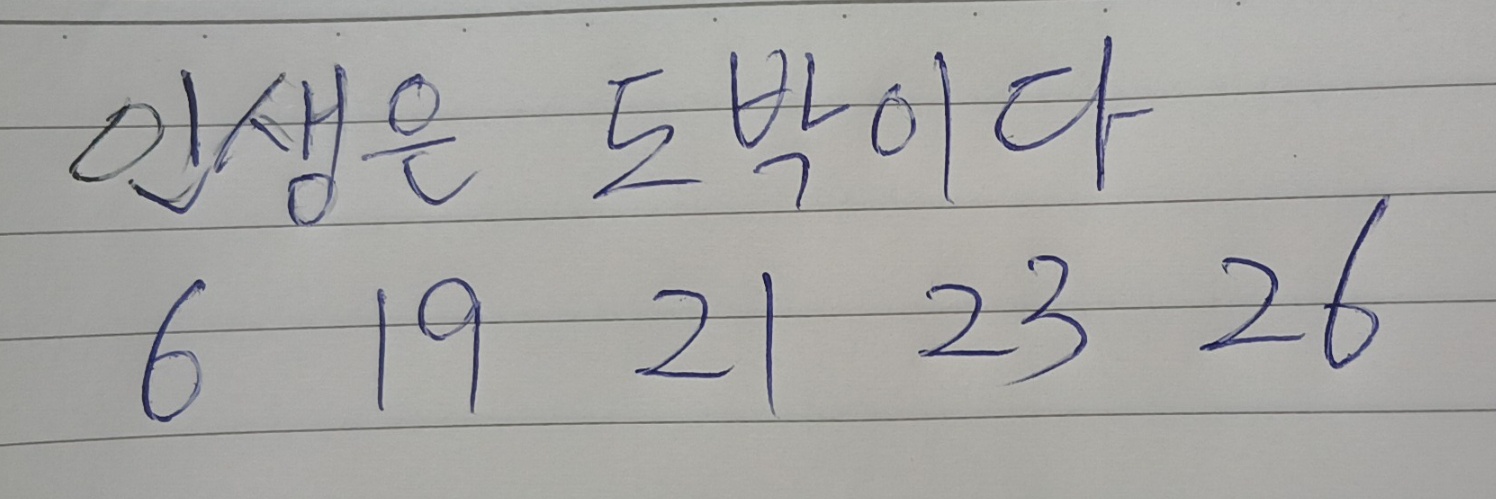 인생은 도박이다
6 19 21 23 26